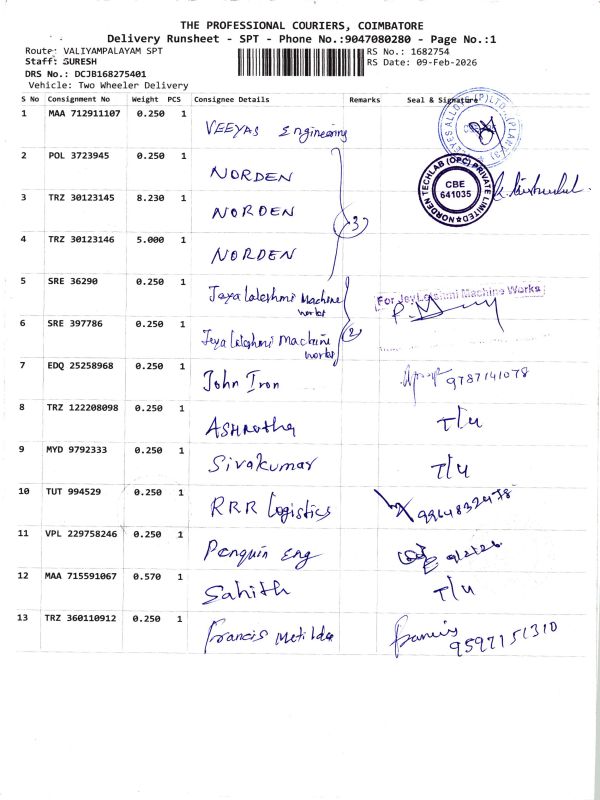 THE PROFESSIONAL COURIERS, COIMBATORE
Delivery Runsheet - SPT - Phone No.:9047080280 - Page No.:1
Route: VALIYAMPALAYAM SPT RS No.: 1682754
Staff: SURESH RS Date: 09-Feb-2026
DRS No.: DCJB168275401
Vehicle: Two Wheeler Delivery
S No Consignment No Weight PCS Consignee Details Remarks Seal & Signature
1 MAA 712911107 0.250 1 VEEYAS Engineering
2 POL 3723945 0.250 1 NORDEN
NORDEN TECHLAB (OPC) PRIVATE LIMITED
CBE
641035
3 TRZ 30123145 8.230 1 NORDEN 3
4 TRZ 30123146 5.000 1 NORDEN
5 SRE 36290 0.250 1 Jaya Lakshmi Machine works
For Jey Lakshmi Machine Works
6 SRE 397786 0.250 1 Jeya Lakshmi Machine works 2
7 EDQ 25258968 0.250 1 John Iron 9787141078
8 TRZ 122208098 0.250 1 ASHRutha T/4
9 MYD 9792333 0.250 1 Sivakumar T/4
10 TUT 994529 0.250 1 RRR Logistics 9964832478
11 VPL 229758246 0.250 1 Penguin Eng 9/2/26
12 MAA 715591067 0.570 1 Sahith T/4
13 TRZ 360110912 0.250 1 Francis Metilda Francis
9597151310